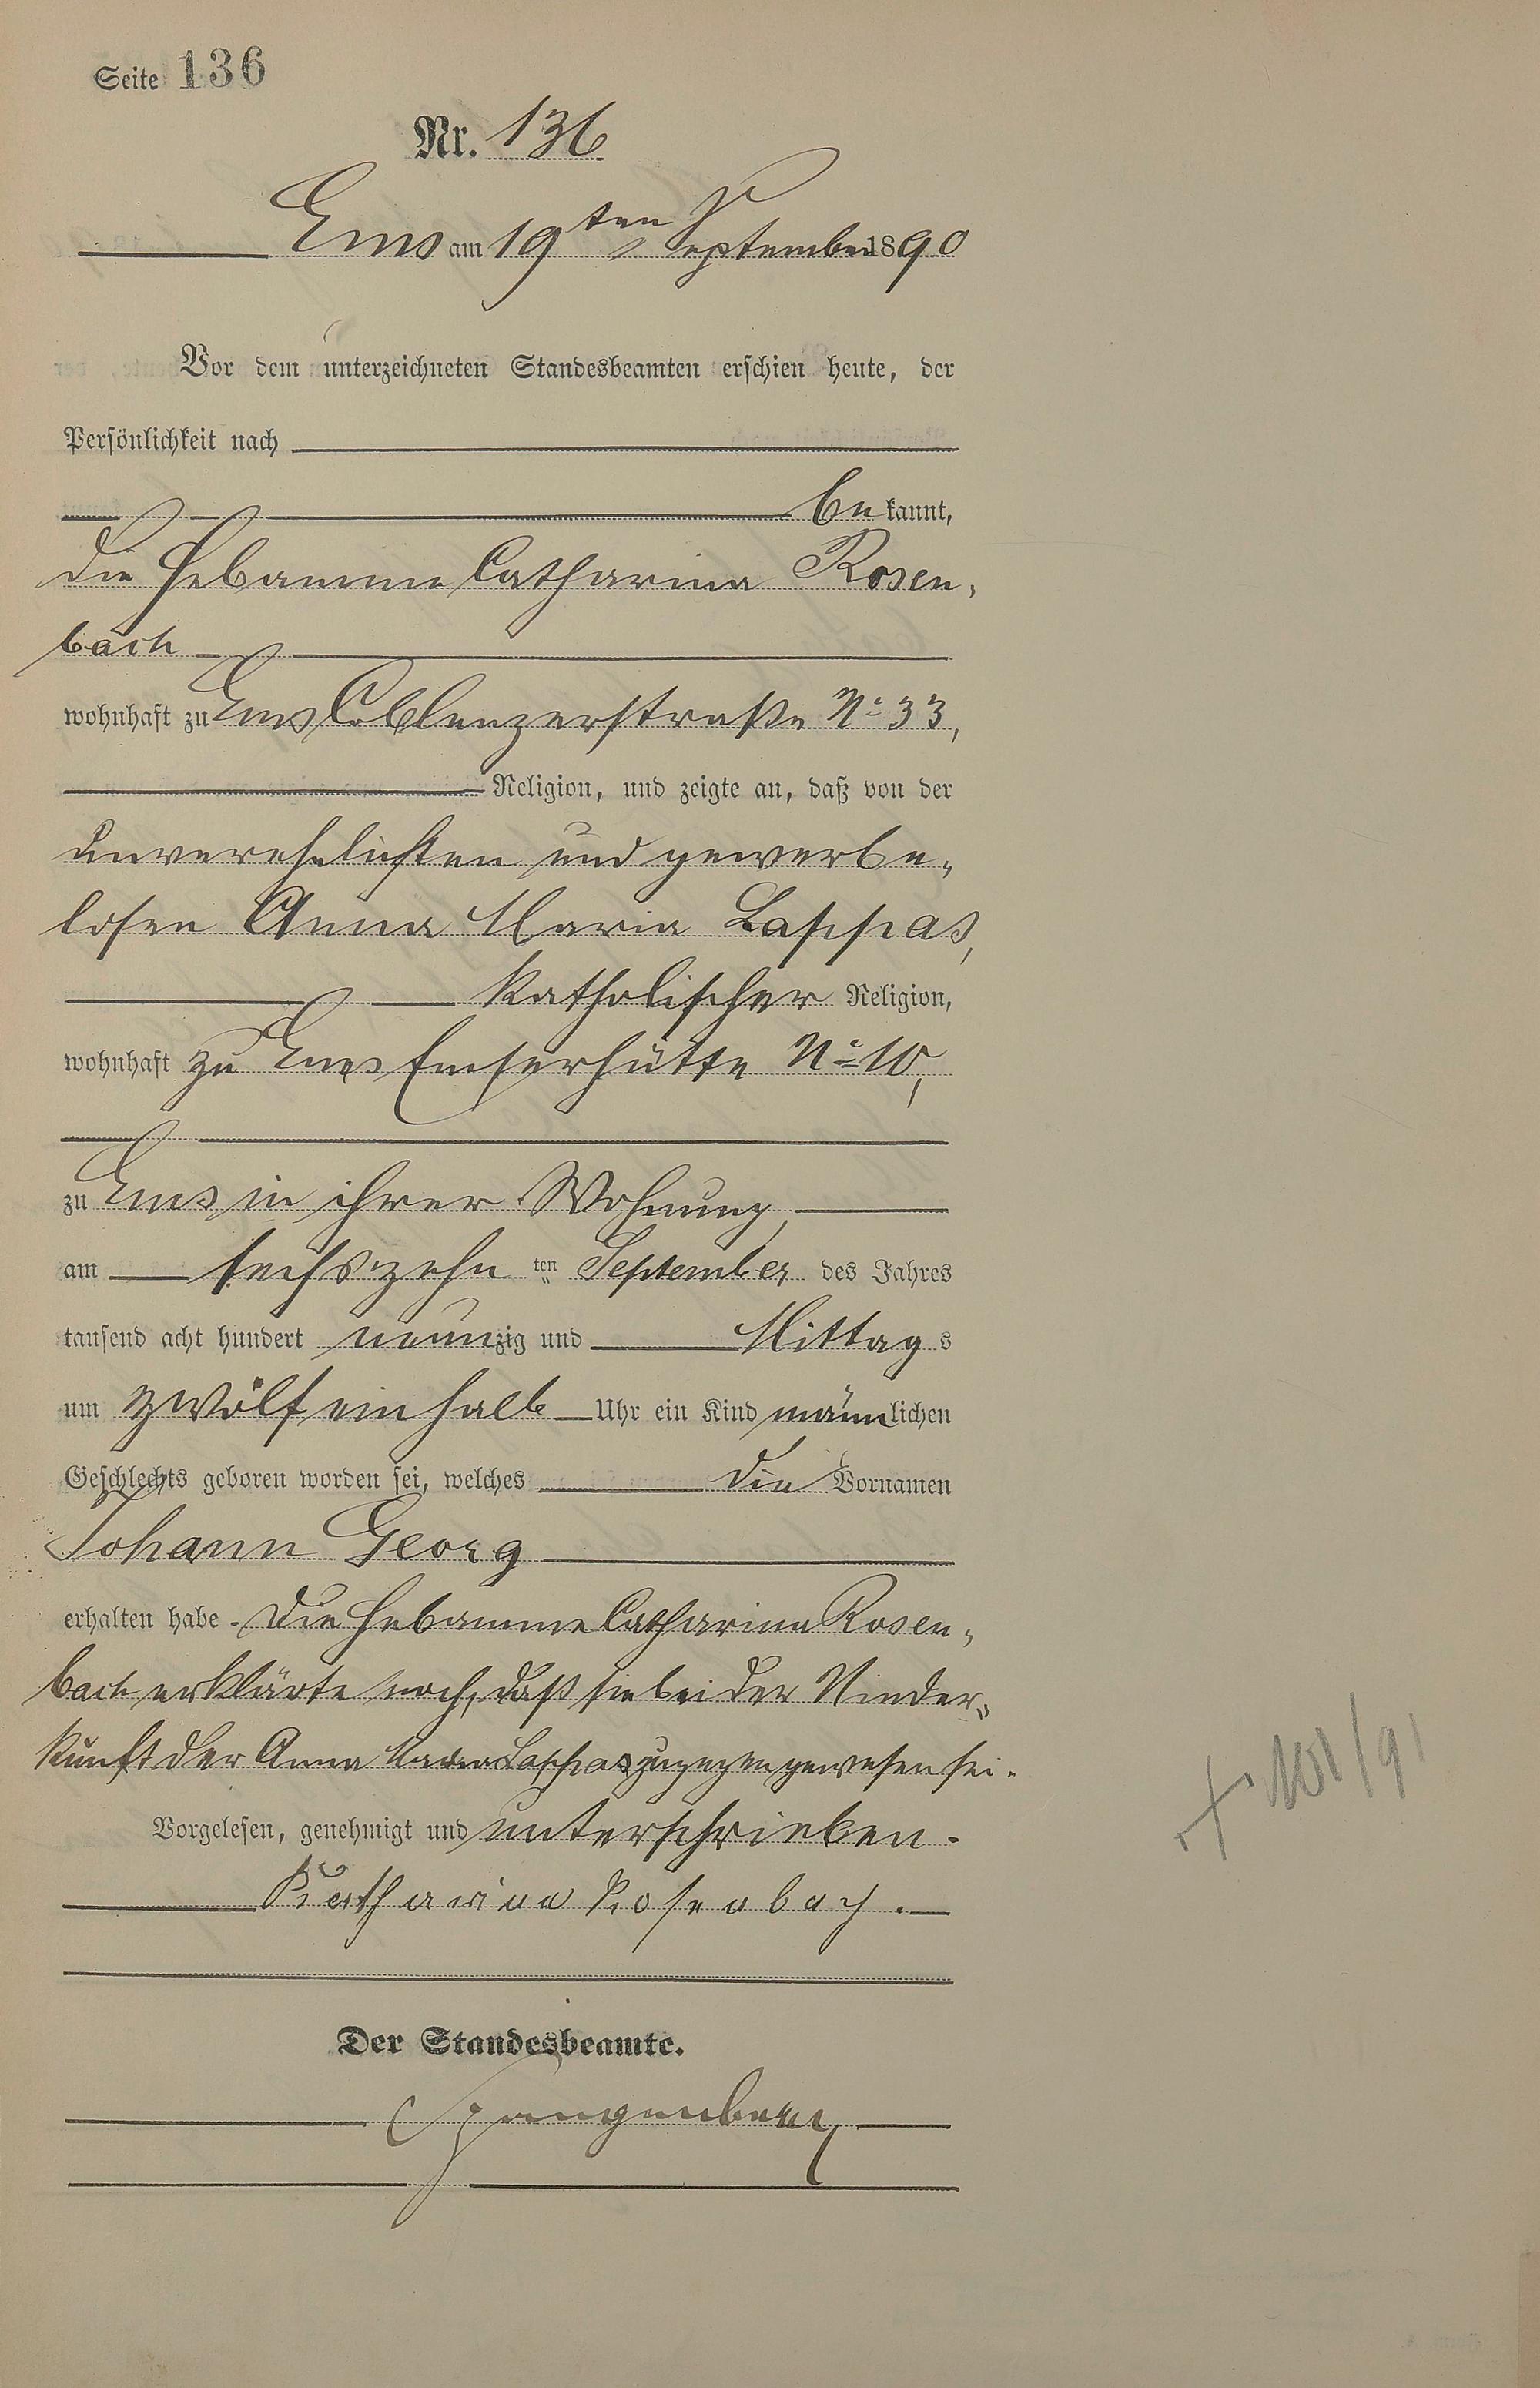 Seite 136
Nr. 136
Ems am 19ten September 1890
Vor dem unterzeichneten Standesbeamten erschien heute, der
Persönlichkeit nach
be kannt,
die Hebamme Catharina Rosen„
bach
wohnhaft zu Ems Coblenzerstraße No 33,
Religion, und zeigte an, daß von der
unverehelichten und gewerbe„
losen Anna Maria Lappas,
katholischer Religion,
wohnhaft zu Ems Emserhütte No 10,
zu Ems in ihrer Wohnung,
am sechszehn ten September des Jahres
tausend acht hundert neunzig und Mittag s
um zwölf einhalb Uhr ein Kind männlichen
Geschlechts geboren worden sei, welches die Vornamen
Johann Georg
erhalten habe. Die Hebamme Catharina Rosen„
bach erklärte noch, daß sie bei der Nieder„
kunft der Anna Maria Lappas zugegen gewesen sei.
Vorgelesen, genehmigt und unterschrieben.
Katharina Rosenbach.
Der Standesbeamte.
101/91